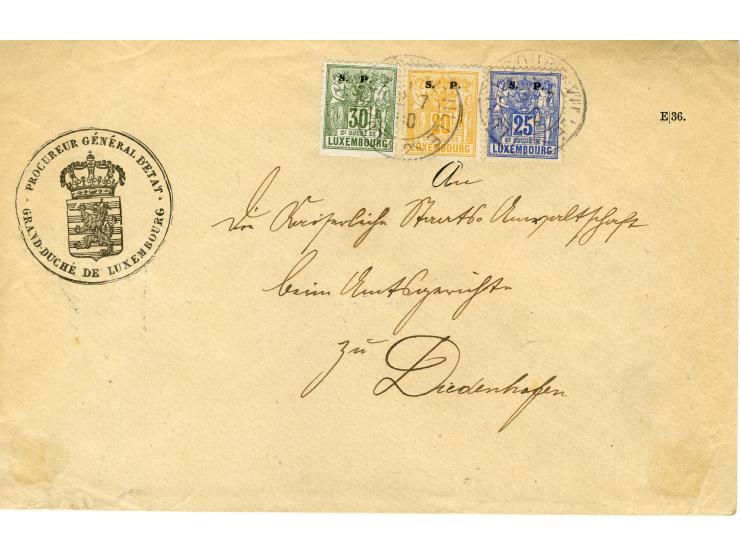 S. P.
30
GD DUCHÉ DE
LUXEMBOURG
S. P.
20
GD DUCHÉ DE
LUXEMBOURG
S. P.
25
GD DUCHÉ DE
LUXEMBOURG
E|36.
· PROCUREUR GÉNÉRAL D'ETAT ·
GRAND-DUCHÉ DE LUXEMBOURG
An
Die Kaiserliche Staats-Anwaltschaft
beim Amtsgerichte
zu
Diedenhofen